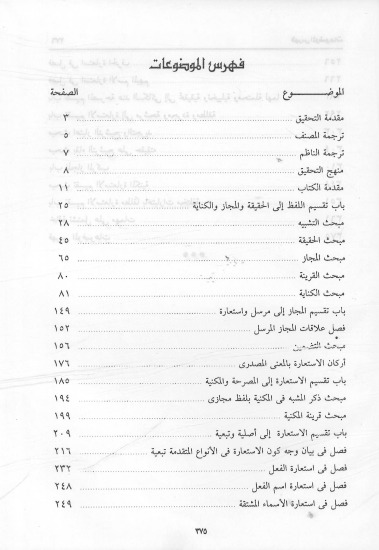 فهرس الموضوعات
الموضـــــوع الصفحة
مقدمة التحقيق ٣
ترجمة المصنف ٥
ترجمة الناظم ٧
منهج التحقيق ٨
مقدمة الكتاب ١١
باب تقسيم اللفظ إلى الحقيقة والمجاز والكناية ٢٥
مبحث التشبيه ٢٨
مبحث الحقيقة ٤٥
مبحث المجاز ٦٥
مبحث القرينة ٨٠
مبحث الكناية ٨١
باب تقسيم المجاز إلى مرسل واستعارة ١٤٩
فصل علاقات المجاز المرسل ١٥٢
مبحث التضمين ١٥٦
أركان الاستعارة بالمعنى المصدرى ١٧٦
باب تقسيم الاستعارة إلى المصرحة والمكنية ١٨٥
مبحث ذكر المشبه فى المكنية بلفظ مجازى ١٩٤
مبحث قرينة المكنية ١٩٩
باب تقسيم الاستعارة إلى أصلية وتبعية ٢٠٩
فصل فى بيان وجه كون الاستعارة فى الأنواع المتقدمة تبعية ٢١٦
فصل فى استعارة الفعل ٢٣٢
فصل فى استعارة اسم الفعل ٢٤٨
فصل فى استعارة الأسماء المشتقة ٢٤٩
٣٧٥